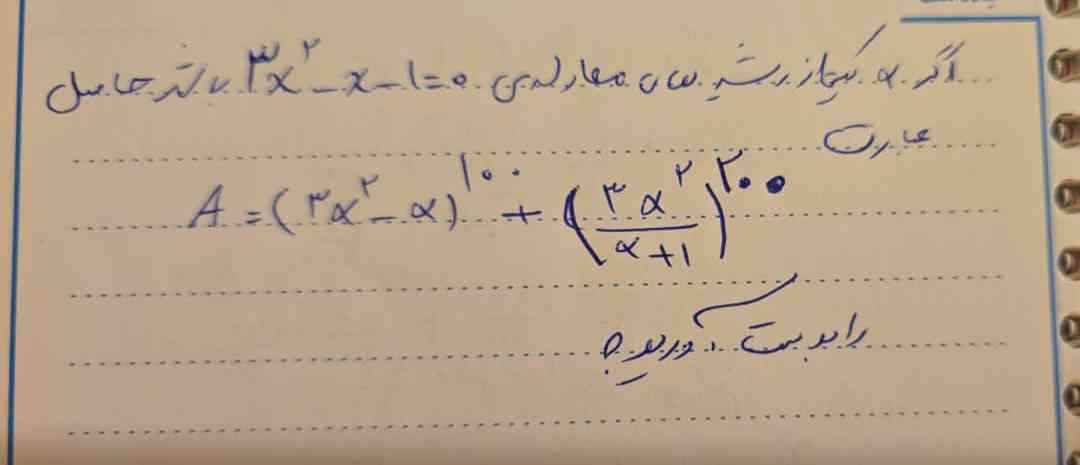 اگر α یکی از ریشه های معادله ی ۳x^۲ - x - ۱ = ۰ باشد حاصل
عبارت
A = (۳α^۲ - α)^۱۰۰ + (۳α^۲ / α+۱)^۲۰۰
را بدست آورید